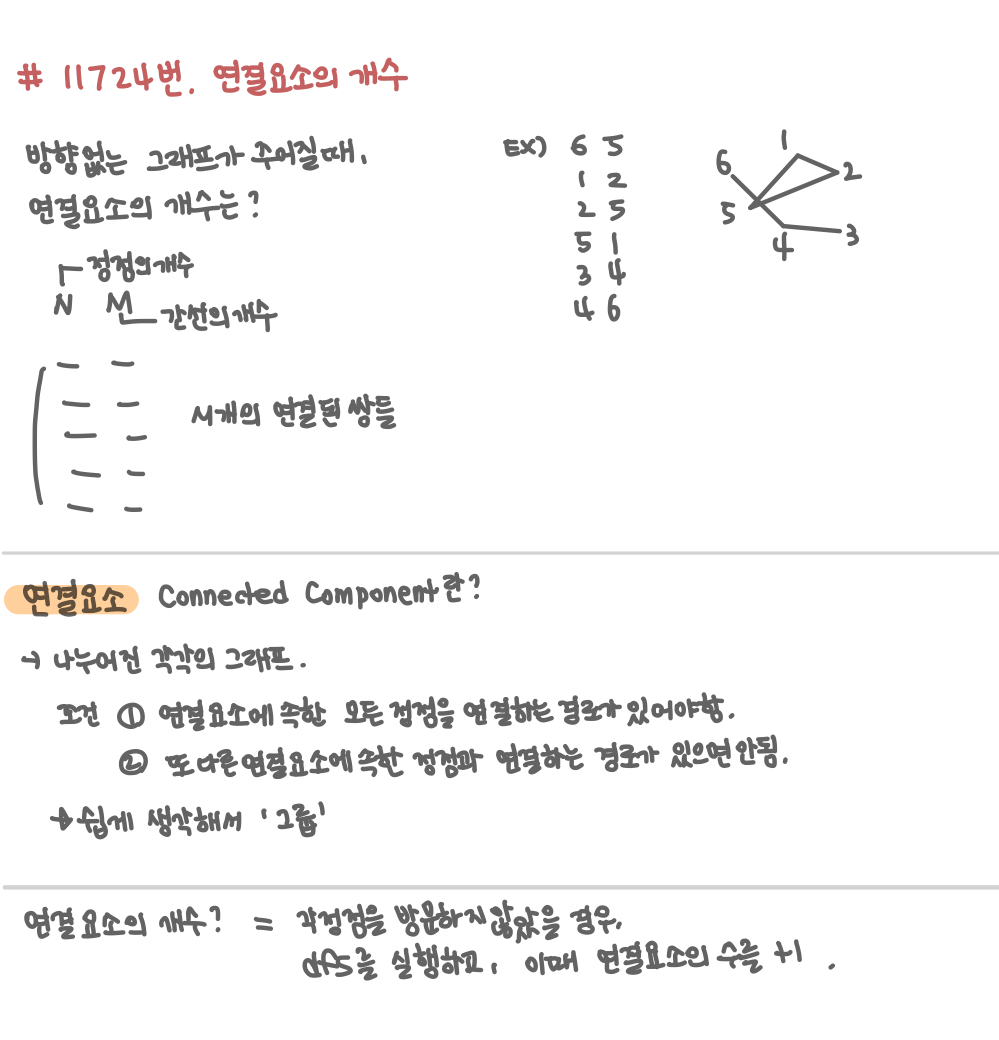 # 11724번. 연결요소의 개수
방향없는 그래프가 주어질때,
연결요소의 개수는?
정점의개수
N M
간선의개수
M개의 연결된 쌍들
EX) 6 5
1 2
2 5
5 1
3 4
4 6
1
6
2
5
4
3
연결요소 Connected Component란?
→ 나누어진 각각의 그래프.
조건 ① 연결요소에 속한 모든 정점을 연결하는 경로가 있어야함.
② 또 다른 연결요소에 속한 정점과 연결하는 경로가 있으면 안됨.
→ 쉽게 생각해서 '그룹'
연결요소의 개수? = 각정점을 방문하지않았을 경우,
dfs를 실행하고, 이때 연결요소의 수를 +1 .